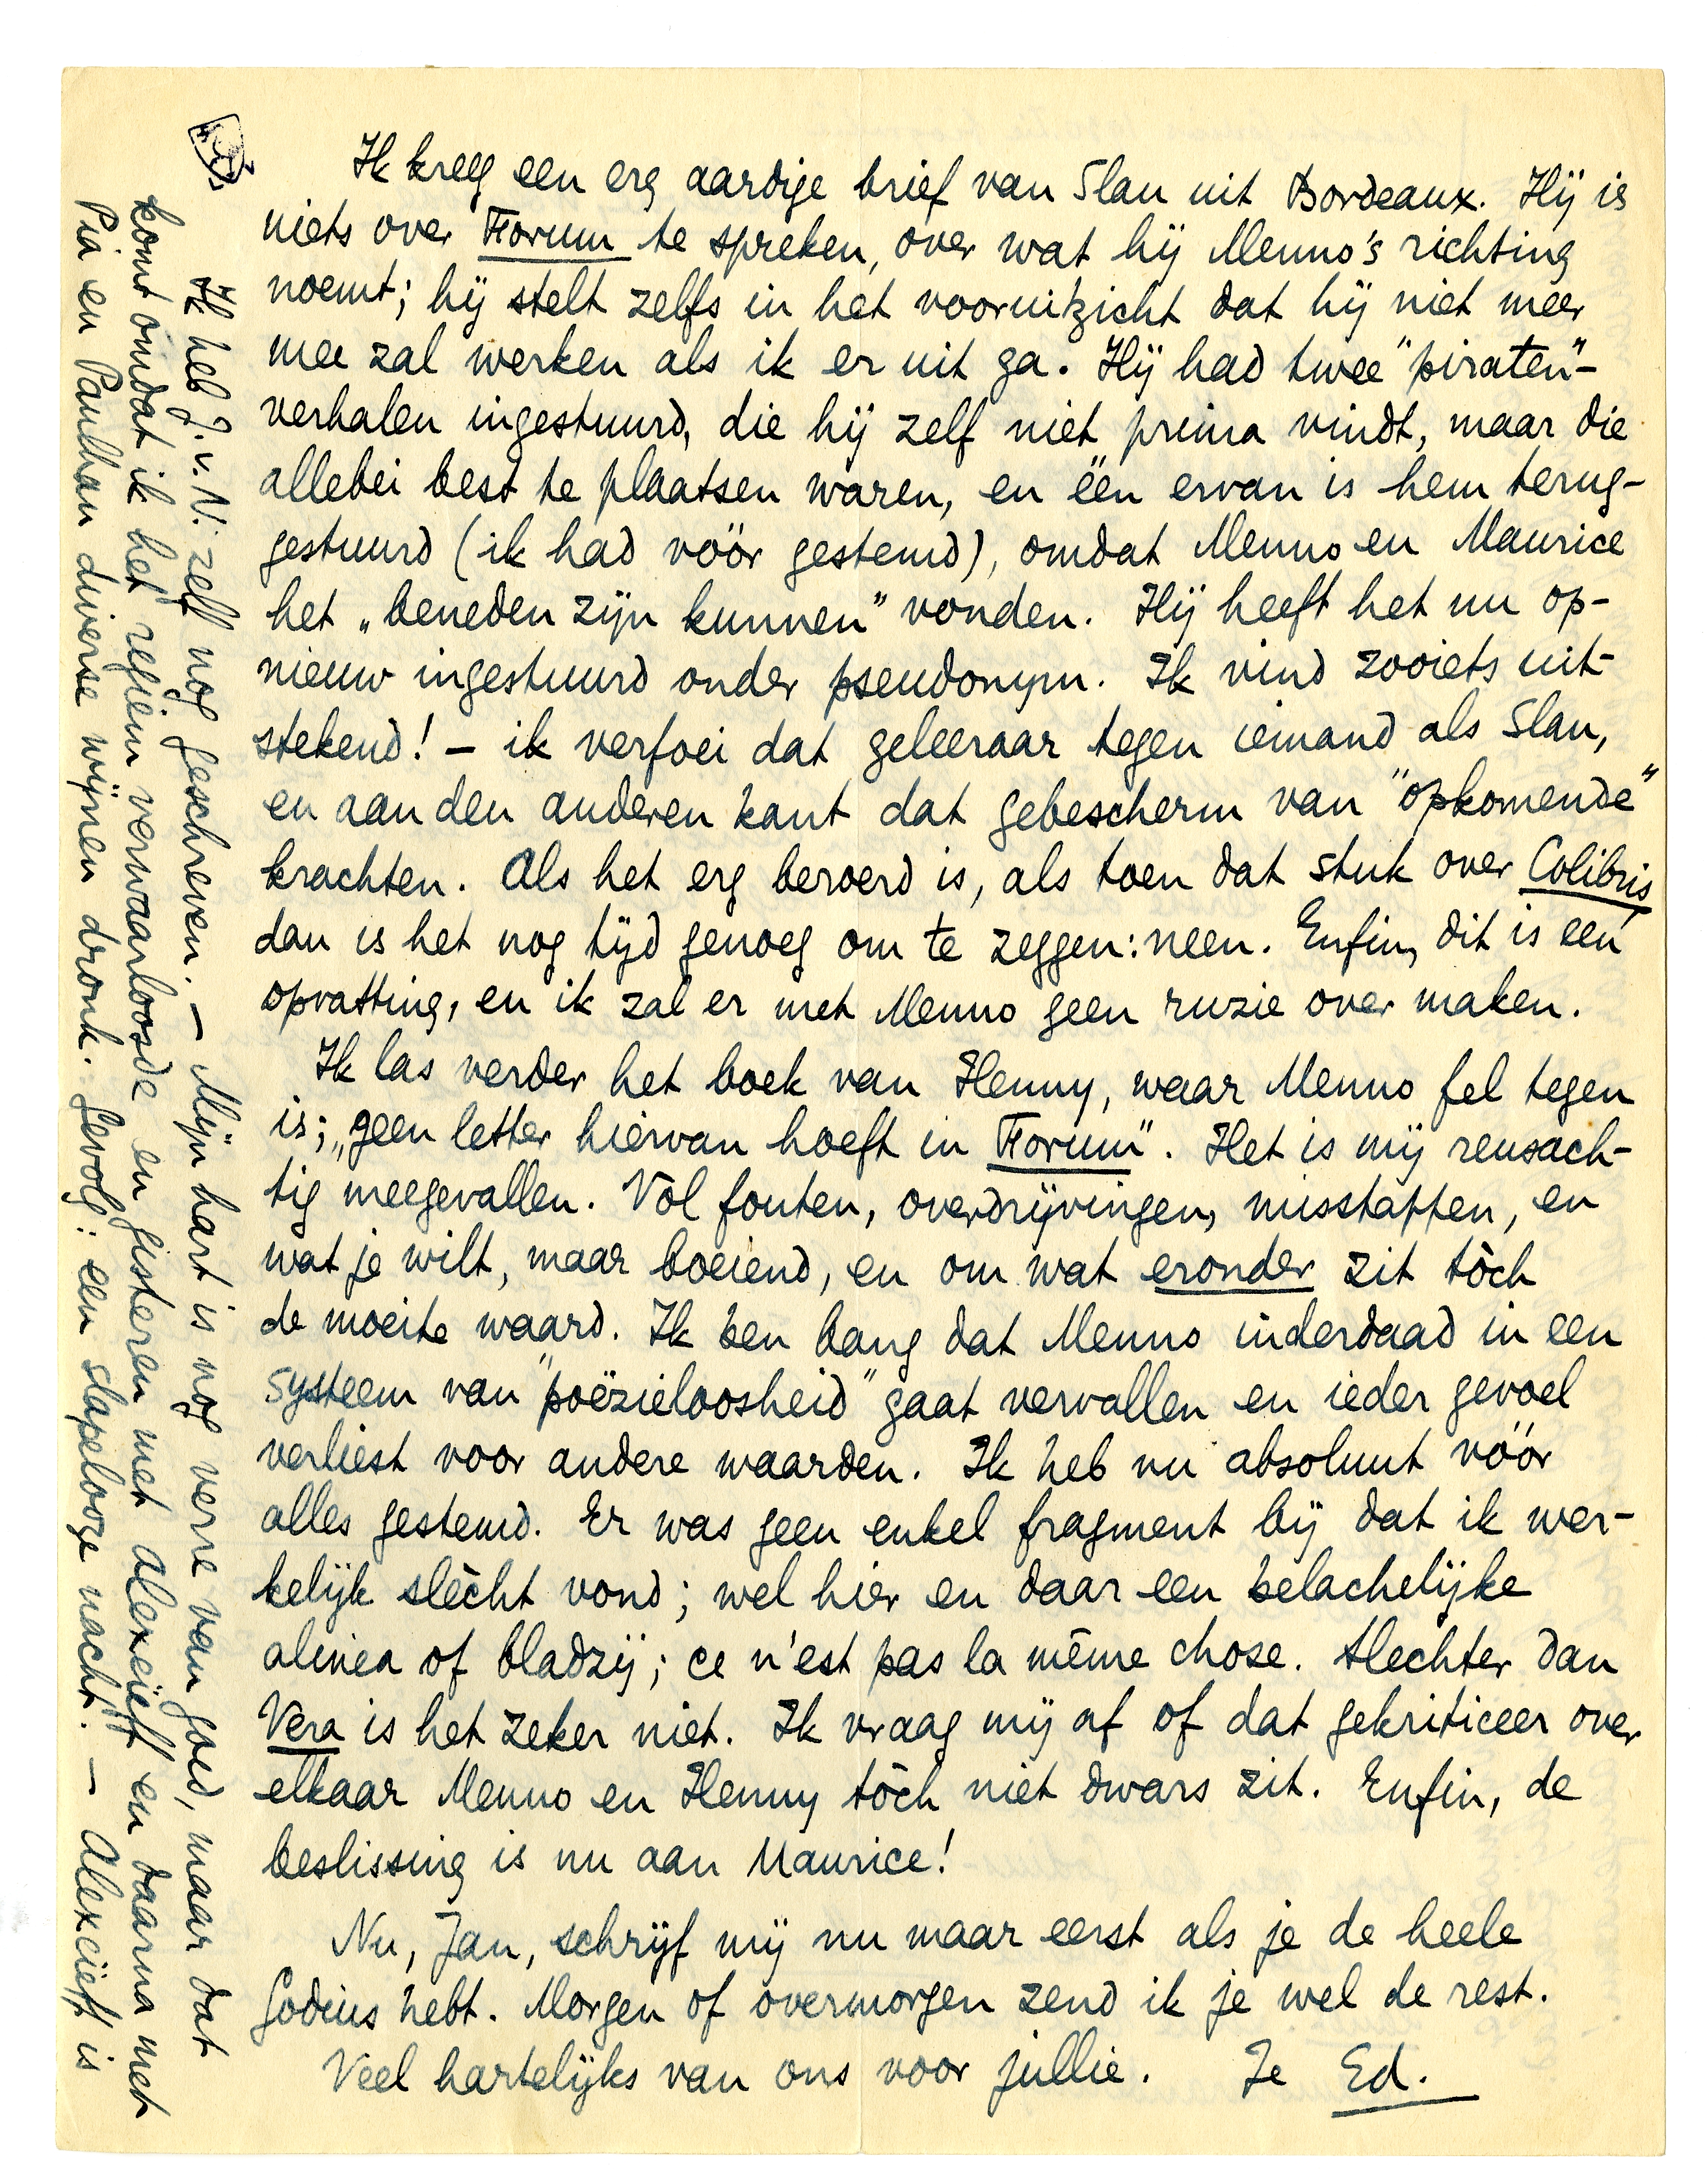 Ik kreeg een erg aardige brief van Slau uit Bordeaux. Hij is
niets over Forum te spreken, over wat hij Menno's richting
noemt; hij stelt zelfs in het vooruitzicht dat hij niet meer
mee zal werken als ik er uit ga. Hij had twee "piraten"-
verhalen ingestuurd, die hij zelf niet prima vindt, maar die
allebei best te plaatsen waren, en één ervan is hem terug-
gestuurd (ik had vóór gestemd), omdat Menno en Maurice
het „beneden zijn kunnen" vonden. Hij heeft het nu op-
nieuw ingestuurd onder pseudonym. Ik vind zooiets uit-
stekend! – ik verfoei dat geleeraar tegen iemand als Slau,
en aan den anderen kant dat gebescherm van "opkomende"
krachten. Als het erg beroerd is, als toen dat stuk over Colibris
dan is het nog tijd genoeg om te zeggen: neen. Enfin, dit is een
opvatting, en ik zal er met Menno geen ruzie over maken.
Ik las verder het boek van Henny, waar Menno fel tegen
is; „geen letter hiervan hoeft in Forum". Het is mij reusach-
tig meegevallen. Vol fouten, overdrijvingen, misstappen, en
wat je wilt, maar boeiend, en om wat eronder zit tòch
de moeite waard. Ik ben bang dat Menno inderdaad in een
systeem van "poëzieloosheid" gaat vervallen en ieder gevoel
verliest voor andere waarden. Ik heb nu absoluut vóór
alles gestemd. Er was geen enkel fragment bij dat ik wer-
kelijk slècht vond; wel hier en daar een belachelijke
alinea of bladzij; ce n'est pas la même chose. Slechter dan
Vera is het zeker niet. Ik vraag mij af of dat gekriticeer over
elkaar Menno en Henny tòch niet dwars zit. Enfin, de
beslissing is nu aan Maurice!
Nu, Jan, schrijf mij nu maar eerst als je de heele
Godius hebt. Morgen of overmorgen zend ik je wel de rest.
Veel hartelijks van ons voor jullie. Je Ed.
Ik heb J.v.N. zelf nog geschreven. – Mijn hart is nog verre van goed, maar dat
komt omdat ik het regiem verwaarloosde en gisteren met Alexeïeff en daarna met
Pia en Paulhan diverse wijnen dronk. Gevolg: een slapelooze nacht. – Alexeïeff is